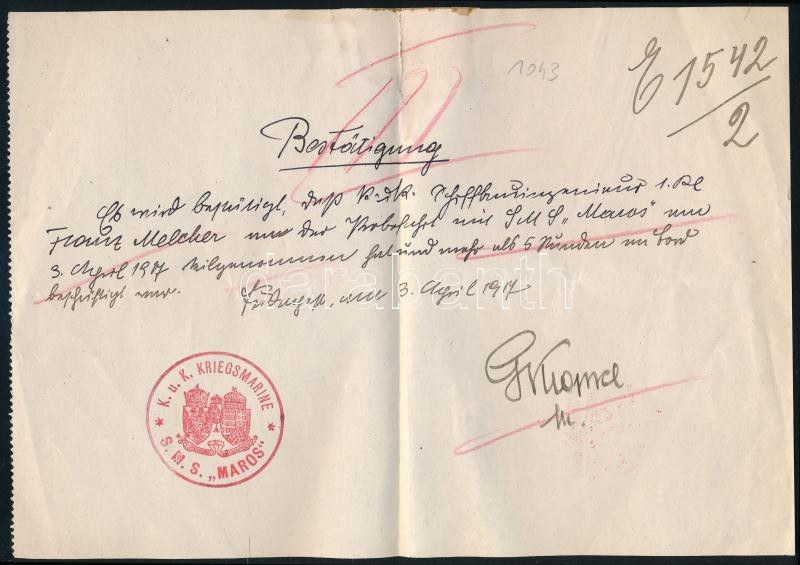 E 1542/2
1043
Bestätigung
Es wird bestätigt, daß k.u.k. Schiffbauingenieur 1. Kl
Franz Melcher an der Probefahrt mit SMS „Maros" am
3. April 1917 teilgenommen hat und mehr als 5 Stunden an Bord
beschäftigt war.
Budapest, am 3. April 1917
darabanth
K. u. K. KRIEGSMARINE
S. M. S. „MAROS"